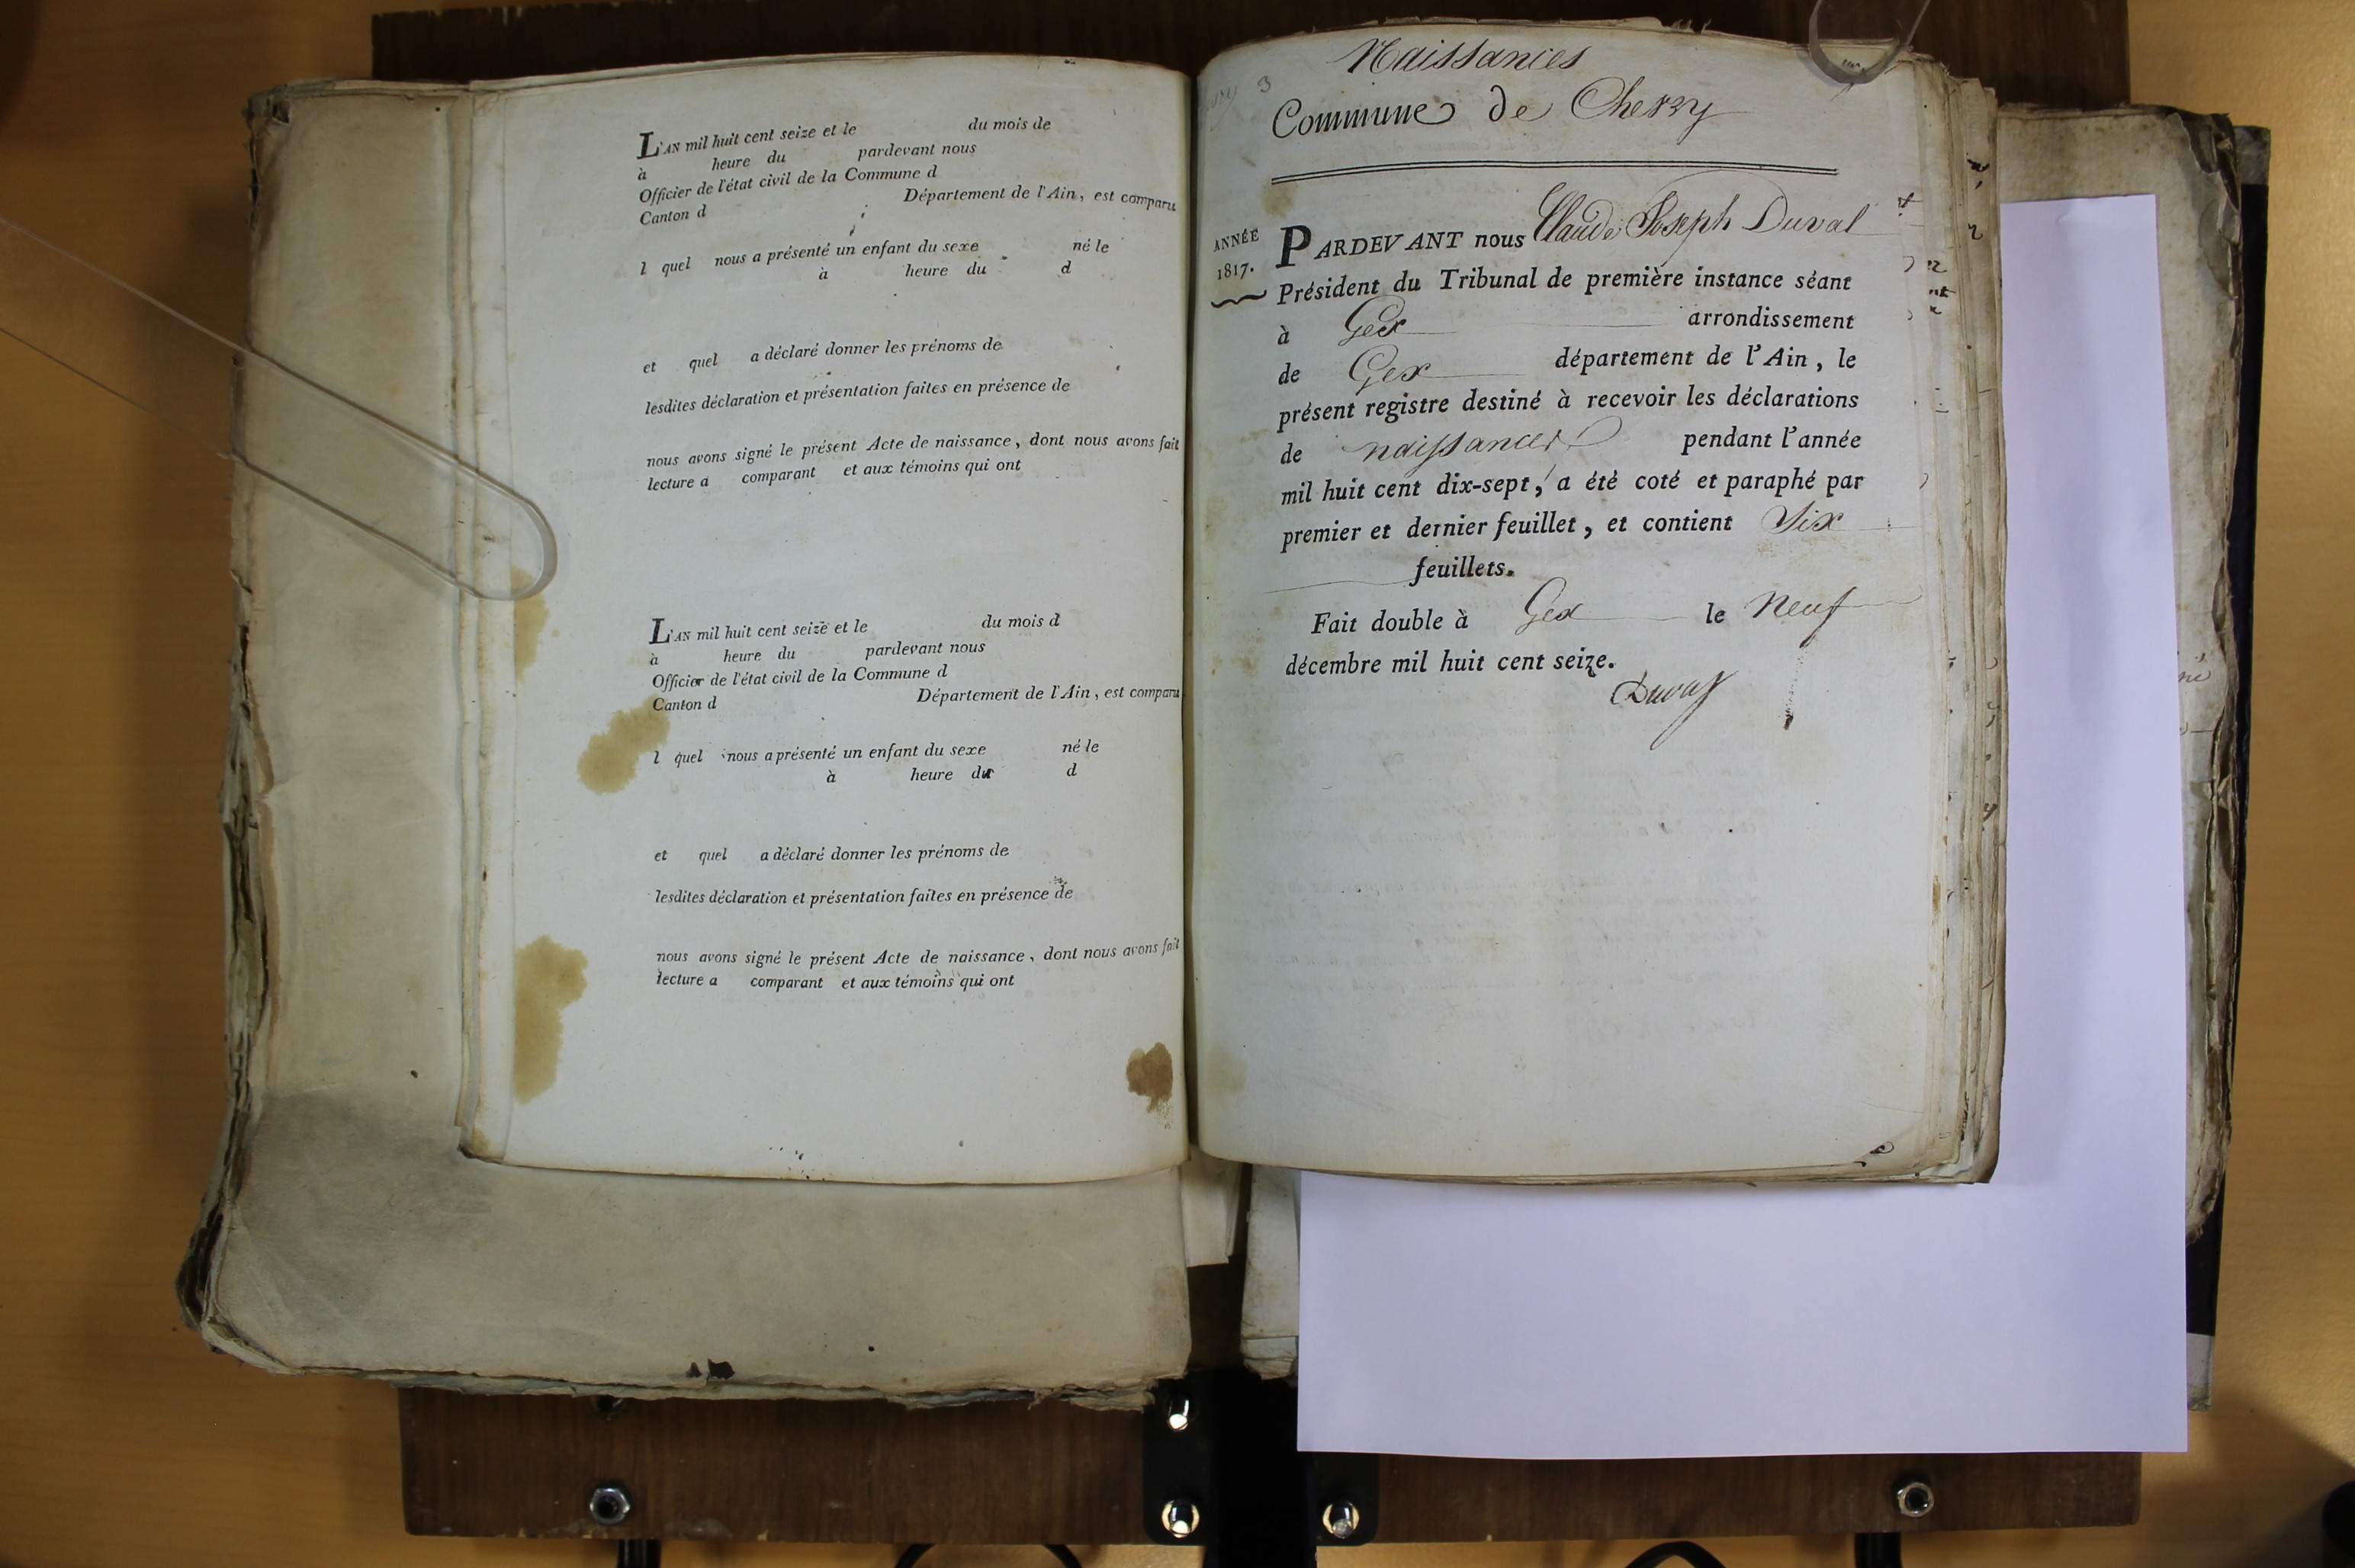 L'AN mil huit cent seize et le du mois de
à heure du pardevant nous
Officier de l'état civil de la Commune d
Canton d Département de l'Ain, est comparu
l quel nous a présenté un enfant du sexe né le
à heure du d
et quel a déclaré donner les prénoms de
lesdites déclaration et présentation faites en présence de
nous avons signé le présent Acte de naissance, dont nous avons fait
lecture a comparant et aux témoins qui ont
L'AN mil huit cent seize et le du mois d
à heure du pardevant nous
Officier de l'état civil de la Commune d
Canton d Département de l'Ain, est comparu
l quel nous a présenté un enfant du sexe né le
à heure du d
et quel a déclaré donner les prénoms de
lesdites déclaration et présentation faites en présence de
nous avons signé le présent Acte de naissance, dont nous avons fait
lecture a comparant et aux témoins qui ont
3
Naissances
Commune de Chesry
ANNÉE
1817.
PARDEVANT nous Claude Joseph Duval
Président du Tribunal de première instance séant
à Gex arrondissement
de Gex département de l'Ain, le
présent registre destiné à recevoir les déclarations
de naissances pendant l'année
mil huit cent dix-sept, a été coté et paraphé par
premier et dernier feuillet, et contient Six
feuillets.
Fait double à Gex le Neuf
décembre mil huit cent seize.
Duval